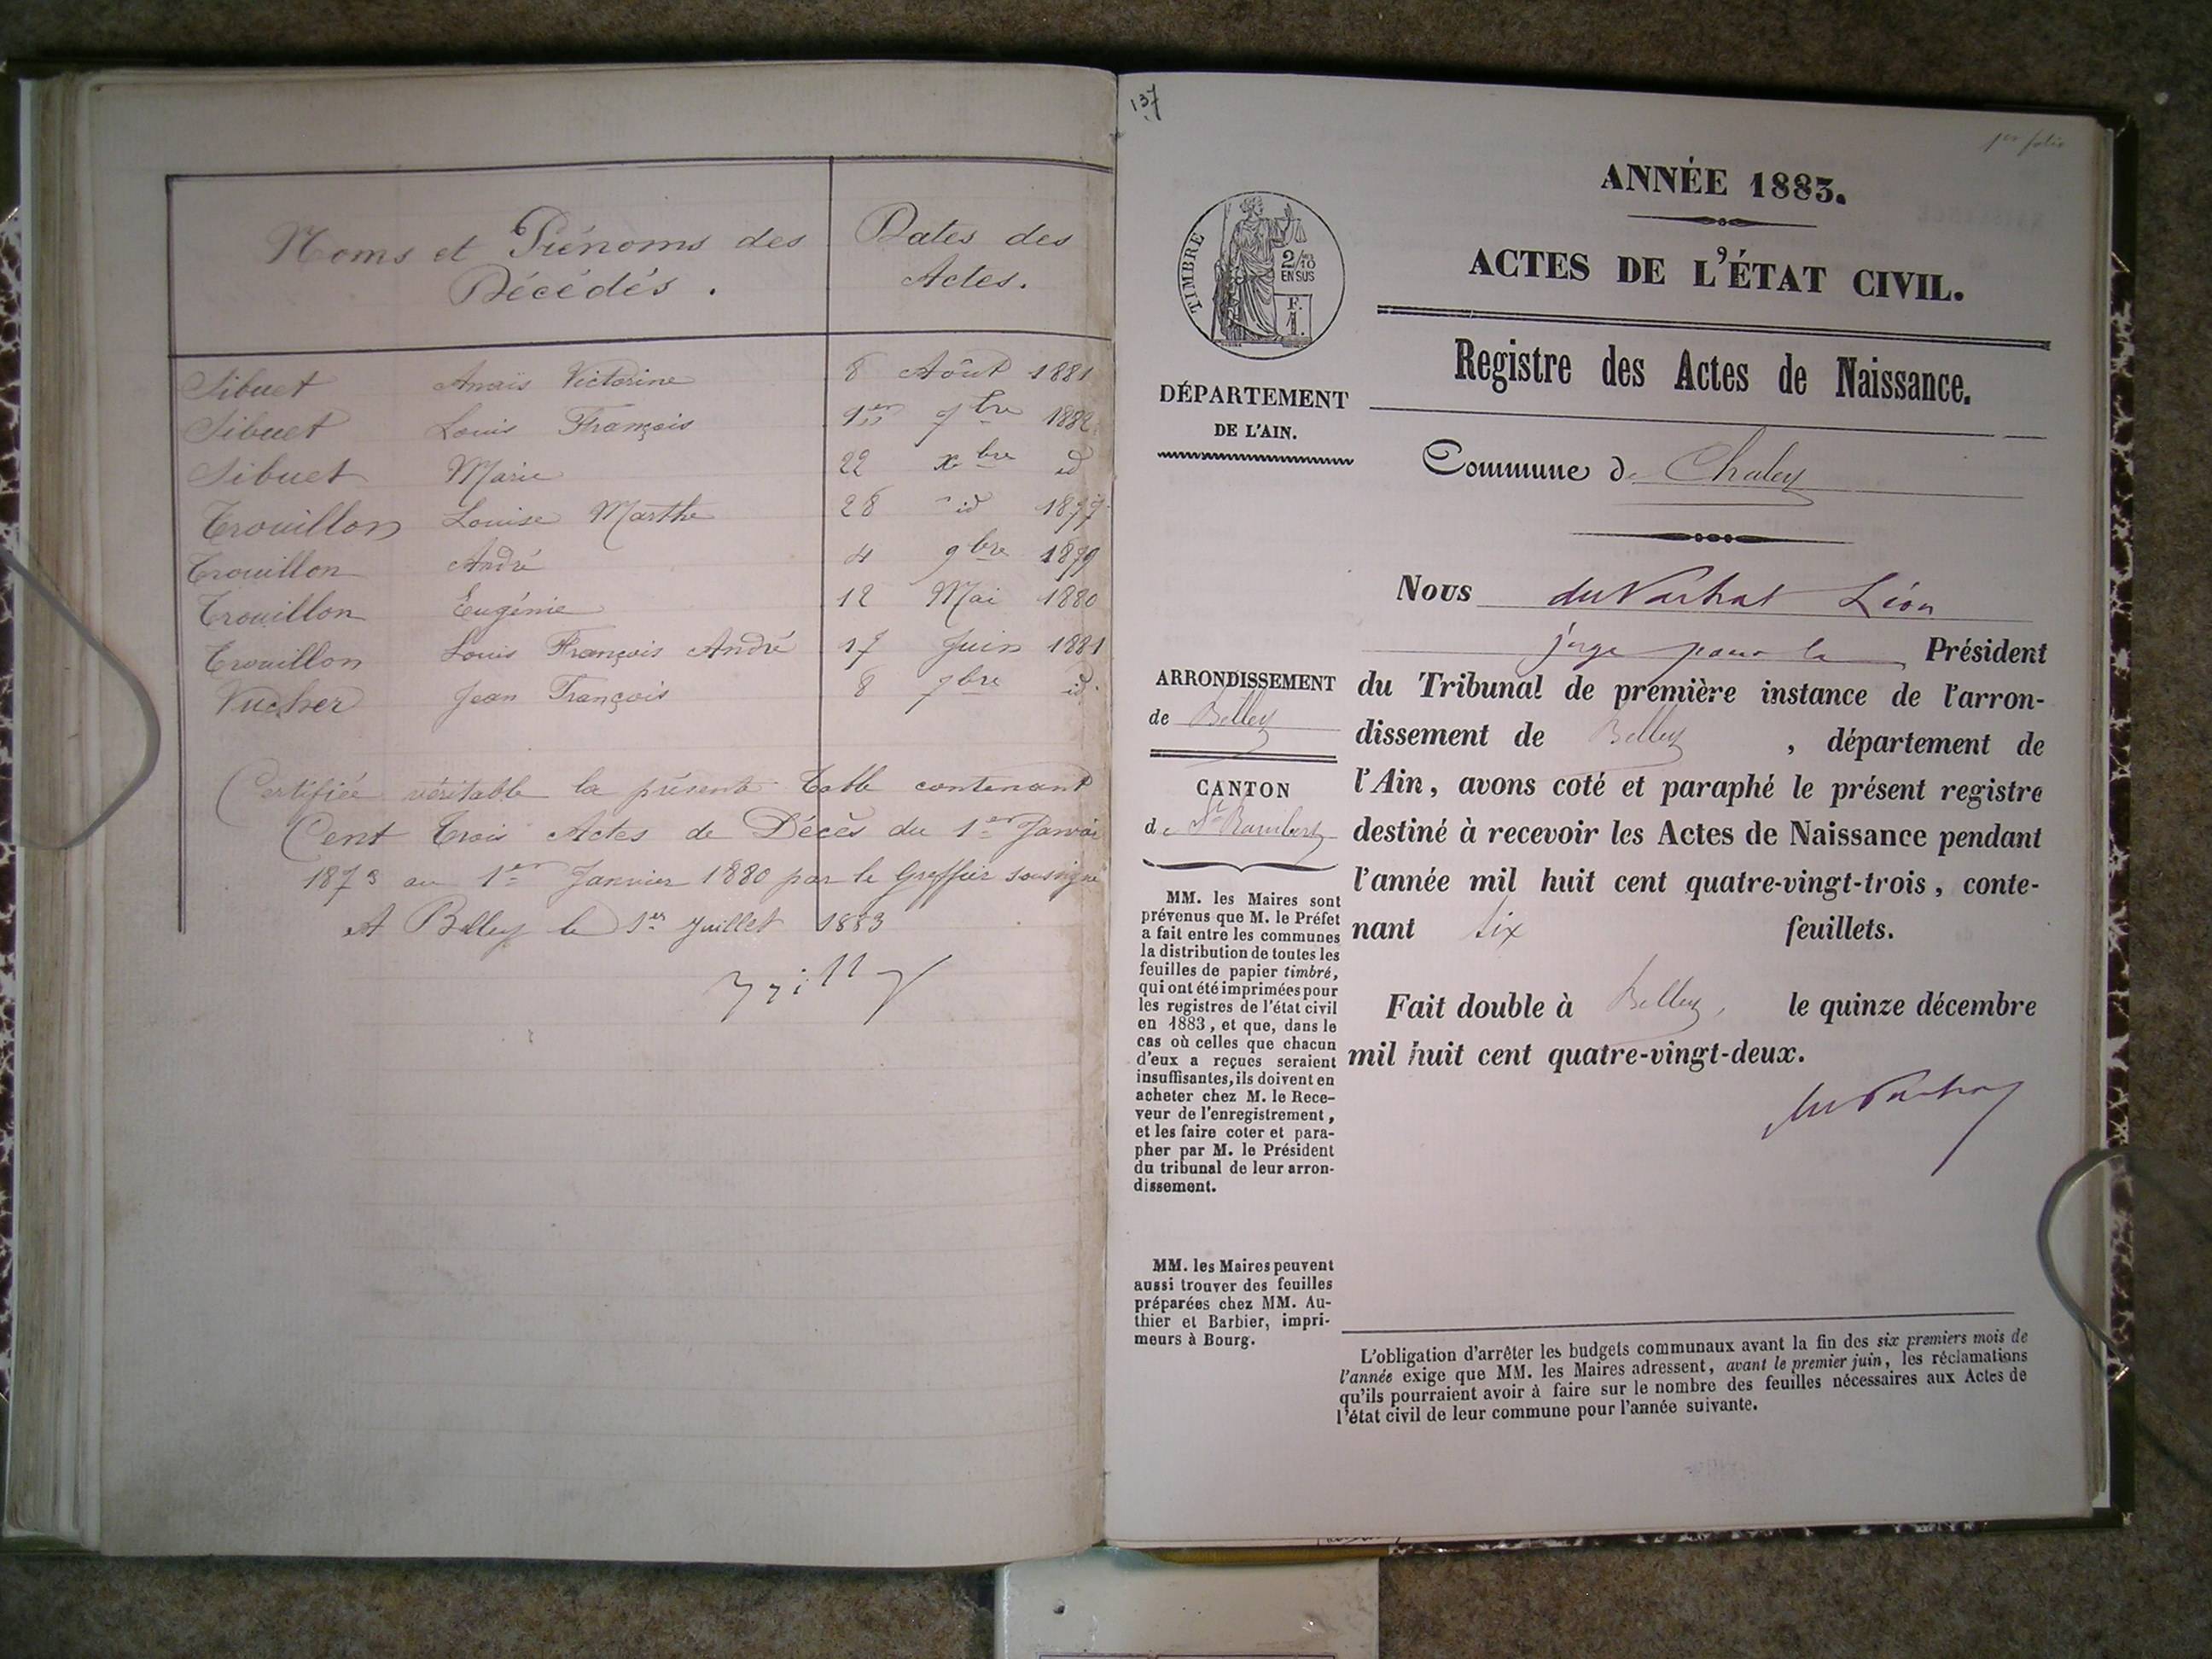 Noms et Prénoms des
Décédés.
Dates des
Actes.
Sibuet Anaïs Victorine 8 Août 1881
Sibuet Louis François 1er 9bre 1882
Sibuet Marie 22 xbre id
Trouillon Louise Marthe 28 id 1877
Trouillon André 4 9bre 1879
Trouillon Eugénie 12 Mai 1880
Trouillon Louis François André 17 Juin 1881
Vucher Jean François 8 7bre id.
Certifiée véritable la présente Table contenant
Cent Trois Actes de Décès du 1er Janvier
1873 au 1er Janvier 1880 par le Greffier soussigné
A Belley le 1er Juillet 1883
137
1er folio
ANNÉE 1883.
ACTES DE L'ÉTAT CIVIL.
Registre des Actes de Naissance.
TIMBRE
2/10
EN SUS
F.
1.
DÉPARTEMENT
DE L'AIN.
Commune de Chaley
Nous Léon
juge pour le Président
du Tribunal de première instance de l'arron-
dissement de Belley, département de
l'Ain, avons coté et paraphé le présent registre
destiné à recevoir les Actes de Naissance pendant
l'année mil huit cent quatre-vingt-trois, conte-
nant six feuillets.
Fait double à Belley, le quinze décembre
mil huit cent quatre-vingt-deux.
ARRONDISSEMENT
de Belley
CANTON
de St Rambert
MM. les Maires sont
prévenus que M. le Préfet
a fait entre les communes
la distribution de toutes les
feuilles de papier timbré,
qui ont été imprimées pour
les registres de l'état civil
en 1883, et que, dans le
cas où celles que chacun
d'eux a reçues seraient
insuffisantes, ils doivent en
acheter chez M. le Rece-
veur de l'enregistrement,
et les faire coter et para-
pher par M. le Président
du tribunal de leur arron-
dissement.
MM. les Maires peuvent
aussi trouver des feuilles
préparées chez MM. Au-
thier et Barbier, impri-
meurs à Bourg.
L'obligation d'arrêter les budgets communaux avant la fin des six premiers mois de
l'année exige que MM. les Maires adressent, avant le premier juin, les réclamations
qu'ils pourraient avoir à faire sur le nombre des feuilles nécessaires aux Actes de
l'état civil de leur commune pour l'année suivante.